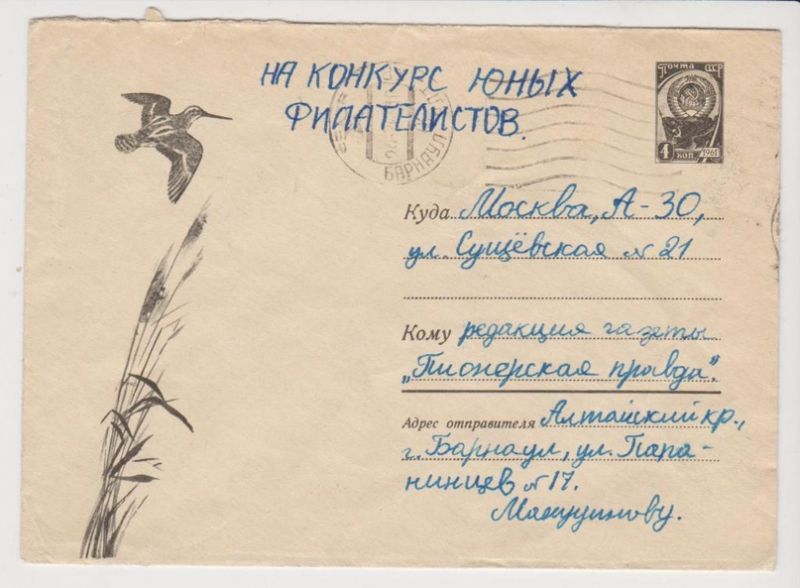 НА КОНКУРС ЮНЫХ
ФИЛАТЕЛИСТОВ.
Почта СССР
4 коп. 1961
БАРНАУЛ
Куда Москва, А-30,
ул. Сущёвская № 21
Кому редакция газеты
„Пионерская правда“.
Адрес отправителя Алтайский кр.,
г. Барнаул, ул. Папа-
нинцев № 17.